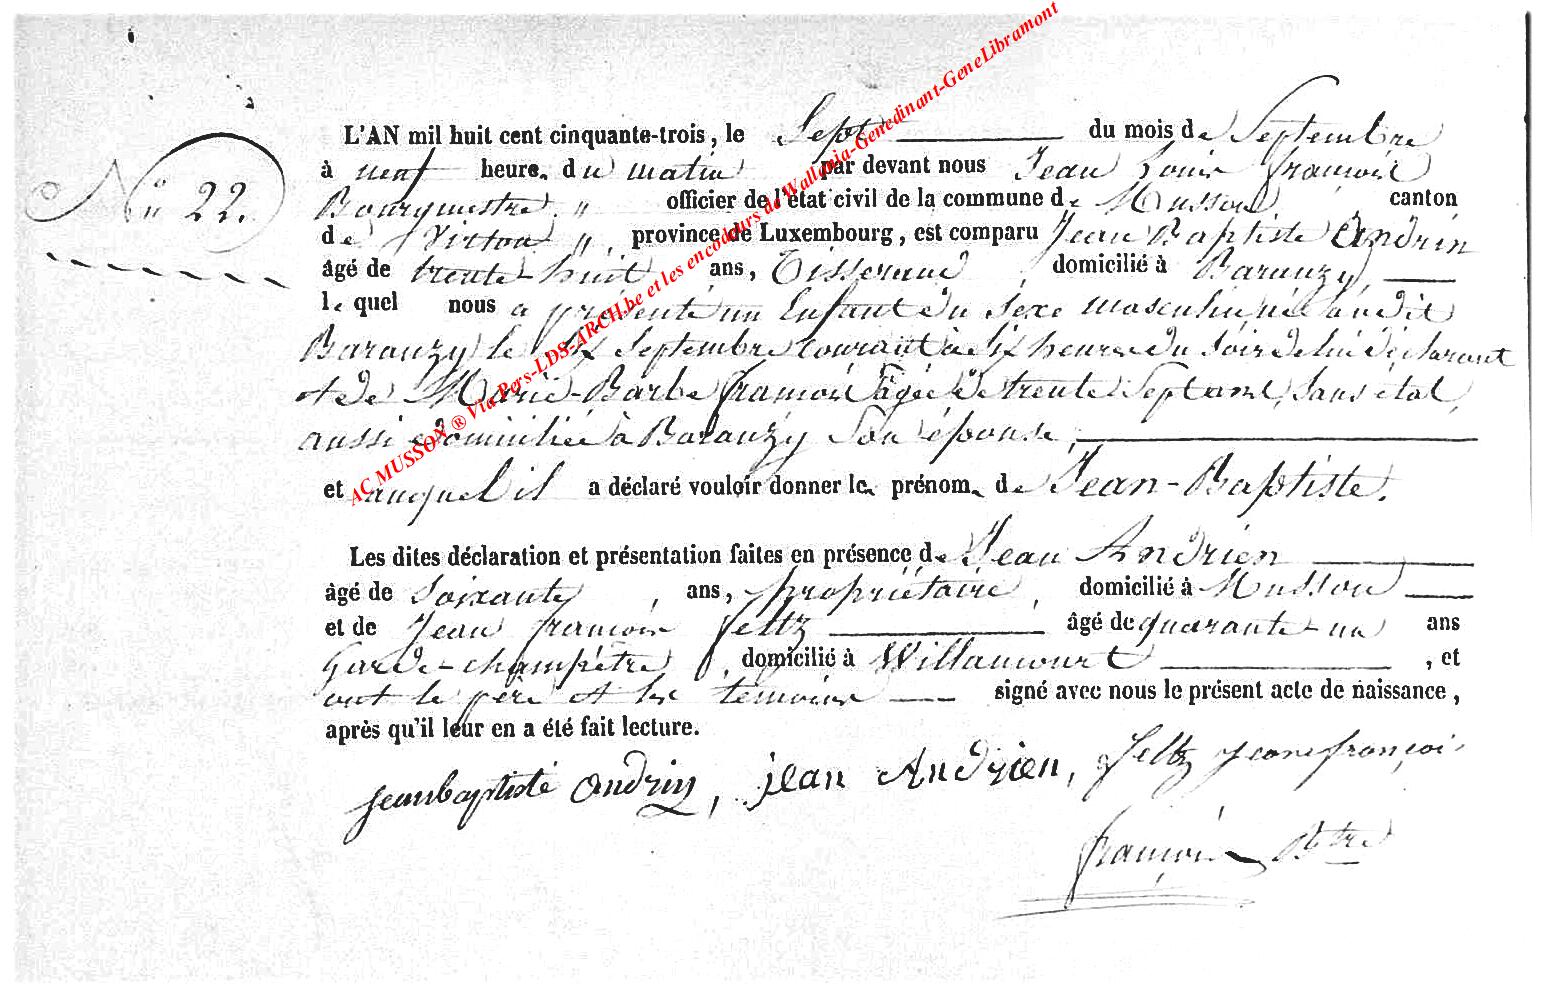 L'AN mil huit cent cinquante-trois, le Sept du mois de Septembre
N° 22.
à neuf heures du matin par devant nous Jean Louis françois
Bourgmestre " officier de l'état civil de la commune de Musson canton
de Virton " province de Luxembourg, est comparu Jean Baptiste Andrin
âgé de trente-huit ans, Tisserand, domicilié à Baranzy,
lequel nous a présenté un Enfant du Sexe masculin, né au dit
Baranzy le Six Septembre Courant à Six heures du Soir de lui déclarant
et de Marie-Barbe françois âgée de trente Sept ans, Sans état,
aussi domiciliée à Baranzy Son épouse,
et auquel il a déclaré vouloir donner les prénoms de Jean-Baptiste.
Les dites déclaration et présentation faites en présence de Jean Andrien
âgé de Soixante ans, propriétaire, domicilié à Musson
et de Jean françois Feltz âgé de quarante-un ans
Garde-champêtre, domicilié à Willancourt, et
ont le père et les témoins signé avec nous le présent acte de naissance,
après qu'il leur en a été fait lecture.
jeanbaptiste andrin, jean Andrien, feltz jeanefrançoi
françois Btre
AC MUSSON ® Via Pers-LDS-ARCH.be et les encodeurs de Wallonia-Genedinant-GeneLibramont